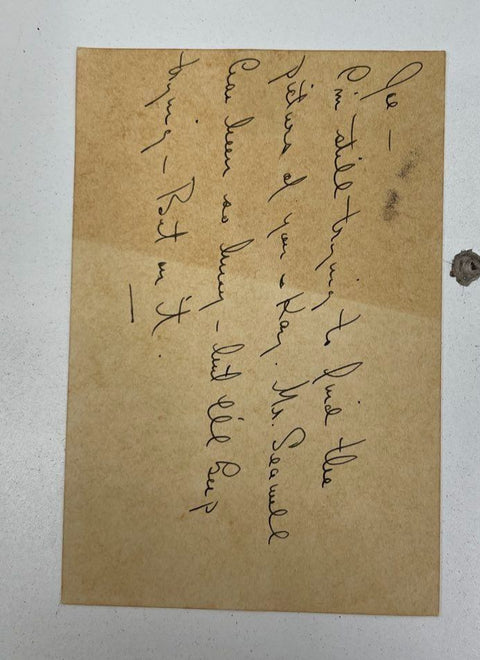 Joe —
I'm still trying to find the
picture of you & Kay. Mr. Seawell
has been so busy — but I'll keep
trying — Bet on it.